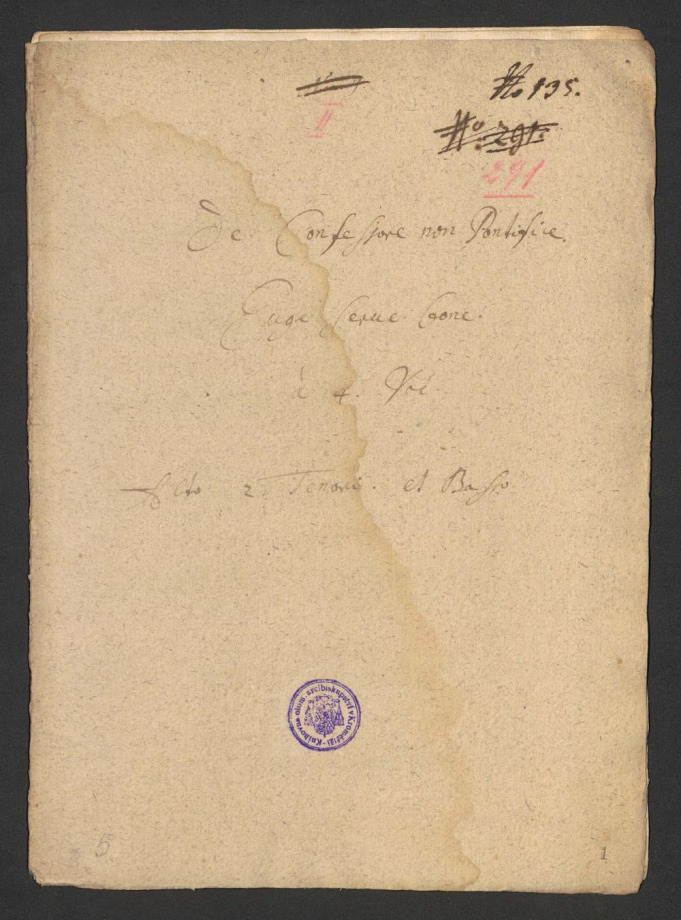 No 135.
No. 291.
II
291
De Confessore non Pontifice.
Euge serue bone.
à 4. Voc
Alto 2 Tenori. et Basso.
Knihovna olom. arcibiskupství v Kroměříži
5
1